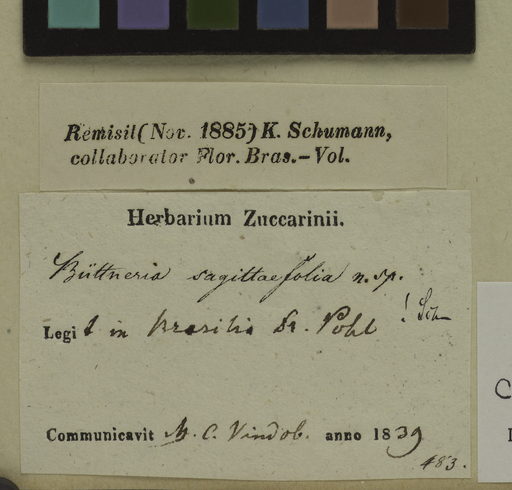 Remisit (Nov. 1885) K. Schumann,
collaborator Flor. Bras. – Vol.
Herbarium Zuccarinii.
Büttneria sagittaefolia n. sp.
! Sch
Legit in brasilia Dr. Pohl
Communicavit M. C. Vindob. anno 1839
483.